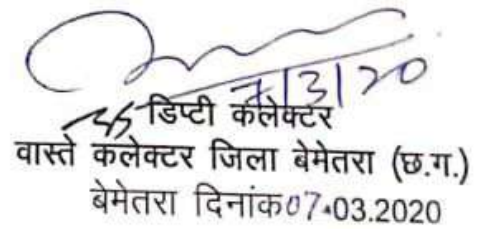 7/3/20
डिप्टी कलेक्टर
वास्ते कलेक्टर जिला बेमेतरा (छ.ग.)
बेमेतरा दिनांक 07.03.2020